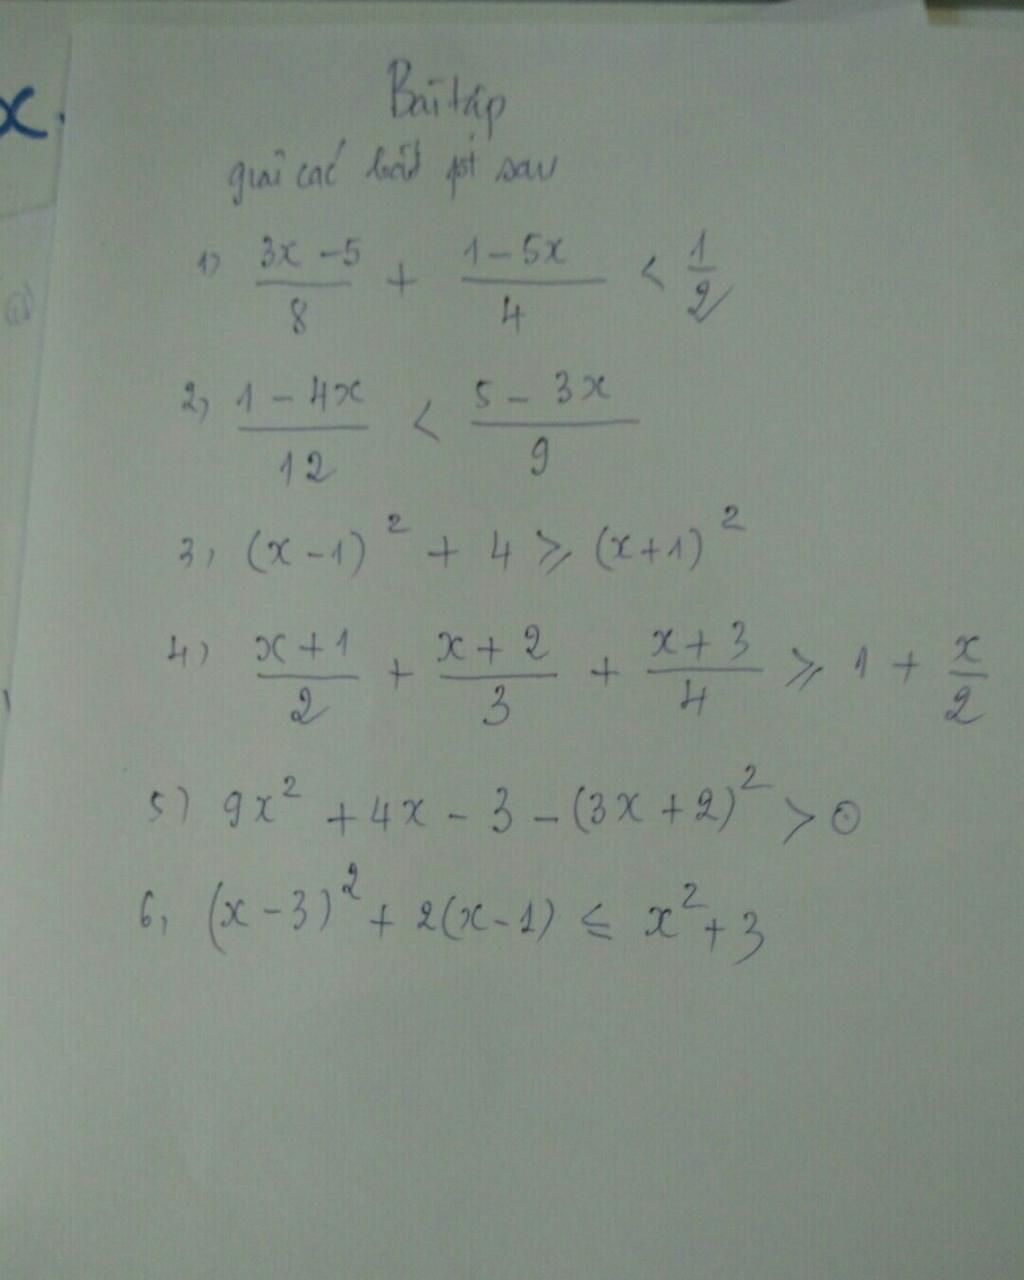 x.
Bài tập
giải các bất pt sau
1) \frac{3x-5}{8} + \frac{1-5x}{4} < \frac{1}{2}
2) \frac{1-4x}{12} < \frac{5-3x}{9}
3) (x-1)^2 + 4 ⩾ (x+1)^2
4) \frac{x+1}{2} + \frac{x+2}{3} + \frac{x+3}{4} ⩾ 1 + \frac{x}{2}
5) 9x^2 + 4x - 3 - (3x+2)^2 > 0
6, (x-3)^2 + 2(x-1) ≤ x^2 + 3